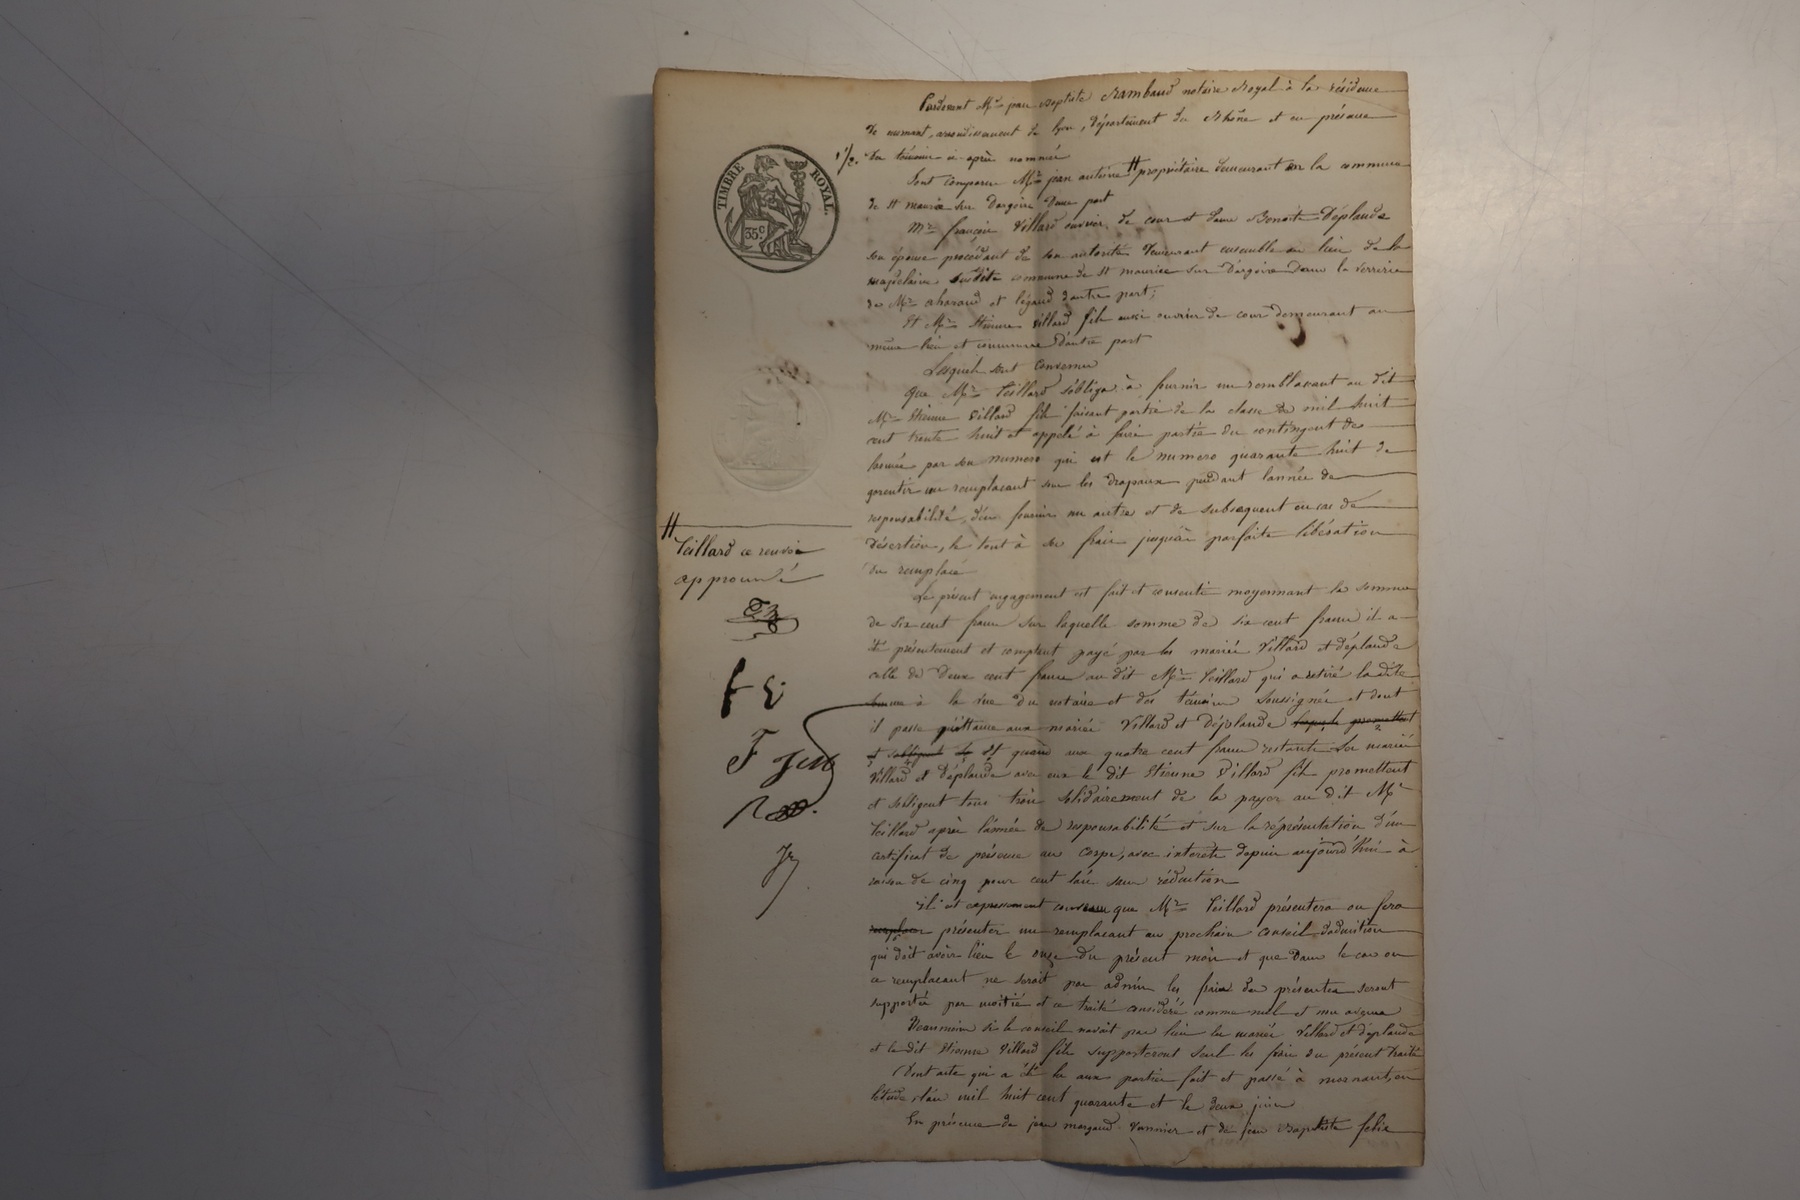 Pardevant Me jean Baptiste Rambaud notaire Royal à la résidence
de mornant, arrondissement de lyon, département du Rhône et en présence
des témoins ci-après nommés
Sont comparus Mr jean antoine # propriétaire demeurant en la commune
de St maurice sur dargoire d'une part
Mr françois Villard ouvrier de cour et dame Benoite Déplaude
son épouse procédant de son autorité demeurant ensemble au lieu de la
magdelaine susdite commune de St maurice sur dargoire dans la verrerie
de Mrs et d'autre part;
Et Mr Etienne Villard fils aussi ouvrier de cour demeurant au
même lieu et commune d'autre part
Lesquels sont convenus
Que Mr Teillard s'oblige à fournir un remplacant au dit
Mr Etienne Villard fils faisant partie de la classe de mil huit
cent trente huit et appelé à faire partie du contingent de
par son numero qui est le numero quarante huit de
garentir un remplacant sous les drapeaux pendant l'année de
responsabilité, d'en fournir un autre et de subsequent en cas de
désertion, le tout à ses frais jusqu'à parfaite libération
du remplacé
Le présent engagement est fait et consenti moyennant la somme
de six cent francs sur laquelle somme de six cent francs il a
été présentement et comptant payé par les mariés Villard et déplaude
celle de deux cent francs au dit Mr Teillard qui a retiré la dite
somme à la vue du notaire et des témoins soussignés et dont
il passe quittance aux mariés Villard et déplaude lesquels promettent
et sobligent de Et quand aux quatre cent francs restants Les mariés
Villard et Déplaude avec eux le dit Etienne Villard fils promettent
et sobligent tous trois solidairement de la payer au dit Mr
Teillard après l'année de responsabilité et sur la réprésentation d'un
certificat de présence au corps, avec interets depuis aujourd'hui à
raison de cinq pour cent l'an sans réduction
il est expressement convenu que Mr Teillard présentera ou fera
remplacer présenter un remplacant au prochain conseil d'admission
qui doit avoir lieu le onze du présent mois et que dans le cas ou
ce remplacant ne serait pas admis les frais des présentes seront
supportés par moitié et ce traité considéré comme nul et non avenu
Néanmoins si le conseil navait pas lieu les mariés Villard et déplaude
et le dit Etienne Villard fils supporteront seuls les frais du présent traité
Dont acte qui a été lu aux parties fait et passé à mornant, en
létude, l'an mil huit cent quarante et le deux juin
En présence de jean et de jean Baptiste felix
TIMBRE ROYAL.
35 c
1 1/2.
# Teillard ce renvoi
approuvé